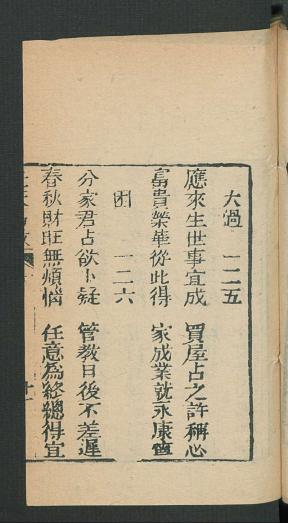 大過 一二五
應來生世事宜成 買屋占之許稱心
富貴榮華從此得 家成業就永康寧
困 一二六
分家君占欲卜疑 管教日後不差遲
春秋財旺無煩惱 任意為終總得宜